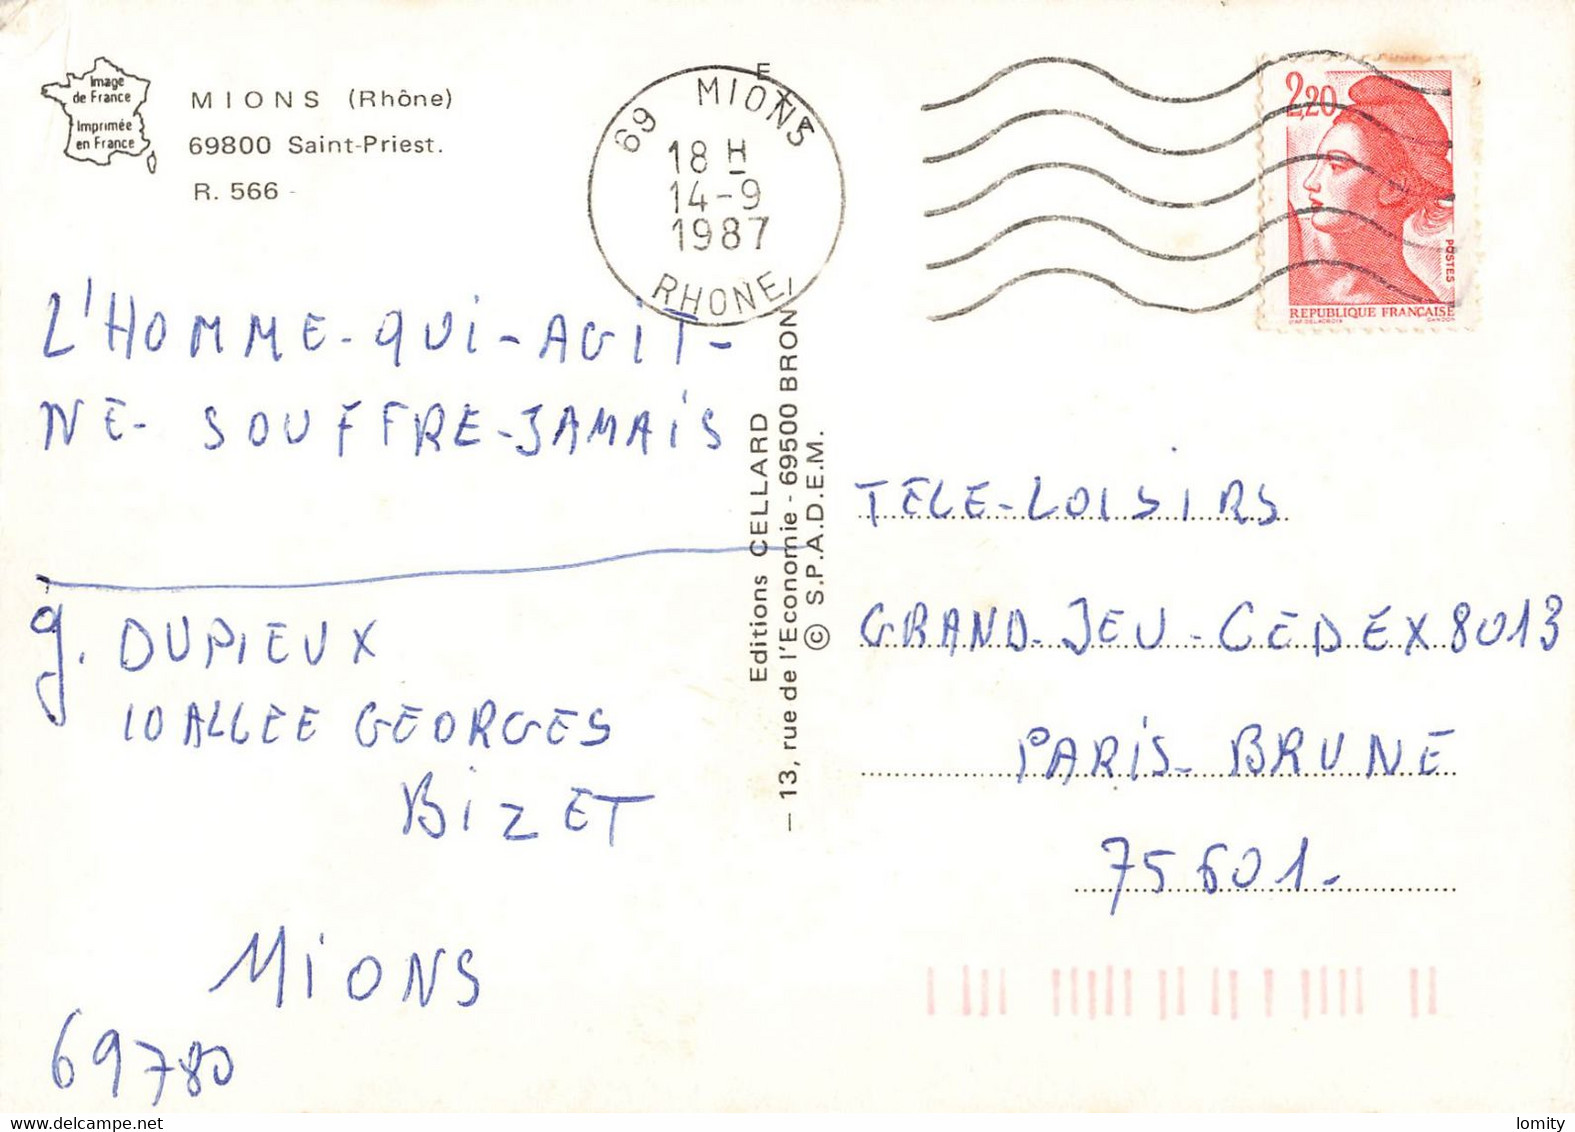 Image
de France
Imprimée
en France
MIONS (Rhône)
69800 Saint-Priest.
R. 566
69 MIONS
18 H
14-9
1987
RHONE
2,20
POSTES
REPUBLIQUE FRANÇAISE
D'AP. DELACROIX GANDON
L'HOMME-QUI-AGIT-
NE- SOUFFRE-JAMAIS
g. DUPIEUX
10 ALLEE GEORGES
BIZET
MIONS
69780
Editions CELLARD
– 13, rue de l'Economie - 69500 BRON
© S.P.A.D.E.M.
TELE-LOISIRS
GRAND-JEU-CEDEX 8013
PARIS-BRUNE
75601-
delcampe.net
lomity